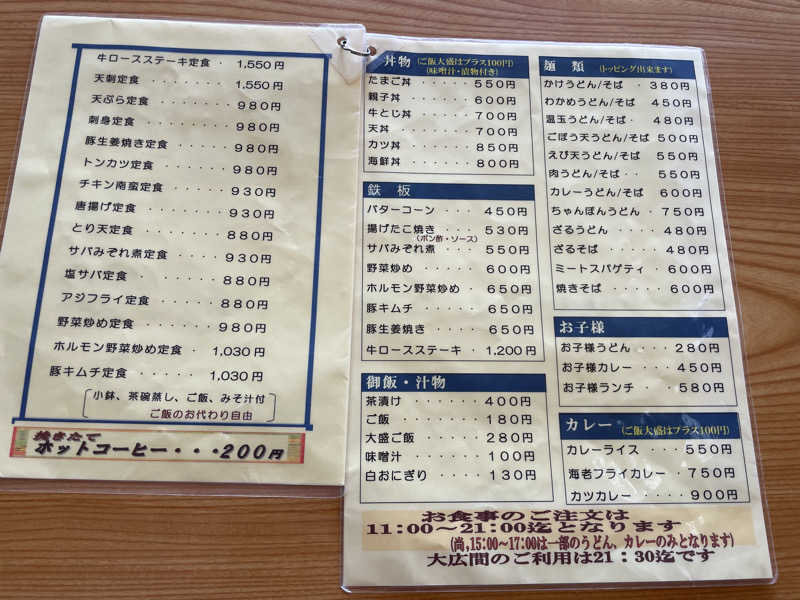 牛ロースステーキ定食・ 1,550円
天刺定食 ・・・・・・・ 1,550円
天ぷら定食 ・・・・・・ 980円
刺身定食 ・・・・・・・ 980円
豚生姜焼き定食 ・・・・ 980円
トンカツ定食 ・・・・・ 980円
チキン南蛮定食 ・・・・ 930円
唐揚げ定食 ・・・・・・ 930円
とり天定食 ・・・・・・ 880円
サバみぞれ煮定食 ・・・ 930円
塩サバ定食 ・・・・・・ 880円
アジフライ定食 ・・・・・ 880円
野菜炒め定食 ・・・・・ 980円
ホルモン野菜炒め定食 ・ 1,030円
豚キムチ定食 ・・・・・ 1,030円
小鉢、茶碗蒸し、ご飯、みそ汁付
ご飯のお代わり自由
挽きたて
ホットコーヒー・・・200円
丼物 (ご飯大盛はプラス100円)
(味噌汁・漬物付き)
たまご丼 ・・・・ 550円
親子丼 ・・・・・ 600円
牛とじ丼 ・・・・ 700円
天丼 ・・・・・・ 700円
カツ丼 ・・・・・ 850円
海鮮丼 ・・・・・ 800円
鉄 板
バターコーン ・・・ 450円
揚げたこ焼き ・・・ 530円
(ポン酢・ソース)
サバみぞれ煮 ・・・ 550円
野菜炒め ・・・・・ 600円
ホルモン野菜炒め ・ 650円
豚キムチ ・・・・・ 650円
豚生姜焼き ・・・・ 650円
牛ロースステーキ ・ 1,200円
御飯・汁物
茶漬け ・・・・・ 400円
ご飯 ・・・・・・ 180円
大盛ご飯 ・・・・ 280円
味噌汁 ・・・・・ 100円
白おにぎり ・・・ 130円
麺 類 (トッピング出来ます)
かけうどん/そば ・ 380円
わかめうどん/そば 450円
温玉うどん/そば・ 480円
ごぼう天うどん/そば 500円
えび天うどん/そば 550円
肉うどん/そば ・・ 550円
カレーうどん/そば 600円
ちゃんぽんうどん ・ 750円
ざるうどん ・・・・ 480円
ざるそば ・・・・・ 480円
ミートスパゲティ ・ 600円
焼きそば ・・・・・ 600円
お子様
お子様うどん ・・・ 280円
お子様カレー ・・・ 450円
お子様ランチ ・・ 580円
カレー (ご飯大盛はプラス100円)
カレーライス ・・・ 550円
海老フライカレー ・ 750円
カツカレー ・・・・ 900円
お食事のご注文は
11:00～21:00迄となります
(尚,15:00～17:00は一部のうどん、カレーのみとなります)
大広間のご利用は21：30迄です